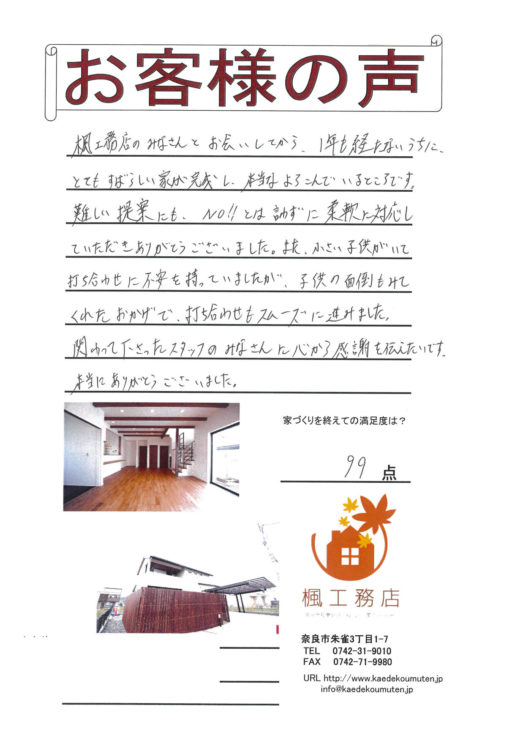 お客様の声
楓工務店のみなさんとお会いしてから、1年も経たないうちに、
とてもすばらしい家が完成し、本当によろこんでいるところです。
難しい提案にも、NO!!とは言わずに柔軟に対応し
ていただきありがとうございました。また、小さい子供がいて
打ち合わせに不安を持っていましたが、子供の面倒もみて
くれたおかげで、打ち合わせもスムーズに進みました。
関わって下さったスタッフのみなさんに心から感謝を伝えたいです。
本当にありがとうございました。
家づくりを終えての満足度は？
99 点
楓工務店
奈良市朱雀3丁目1-7
TEL 0742-31-9010
FAX 0742-71-9980
URL http://www.kaedekoumuten.jp
info@kaedekoumuten.jp